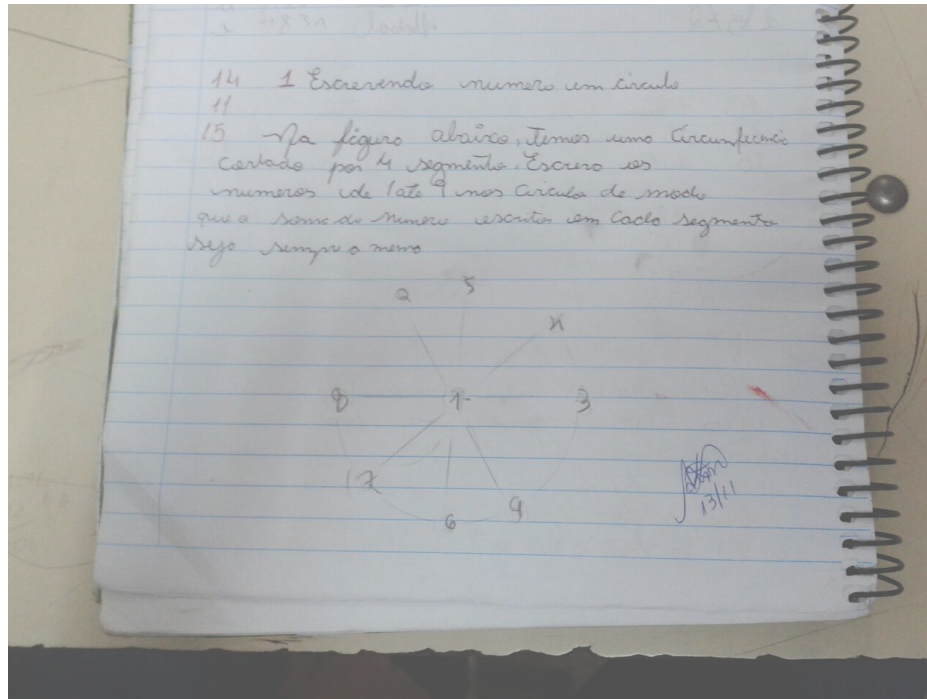 14 1 Escrevendo numero em circulo
11
15 Na figura abaixo, temos uma circunferencia
cortado por 4 segmento. Escrero os
numeros de 1 ate 9 nos circulo de modo
que a soma do numero escrito em cado segmento
sejo sempre o memo
2 5
4
8 1 3
7
6 9
13/11